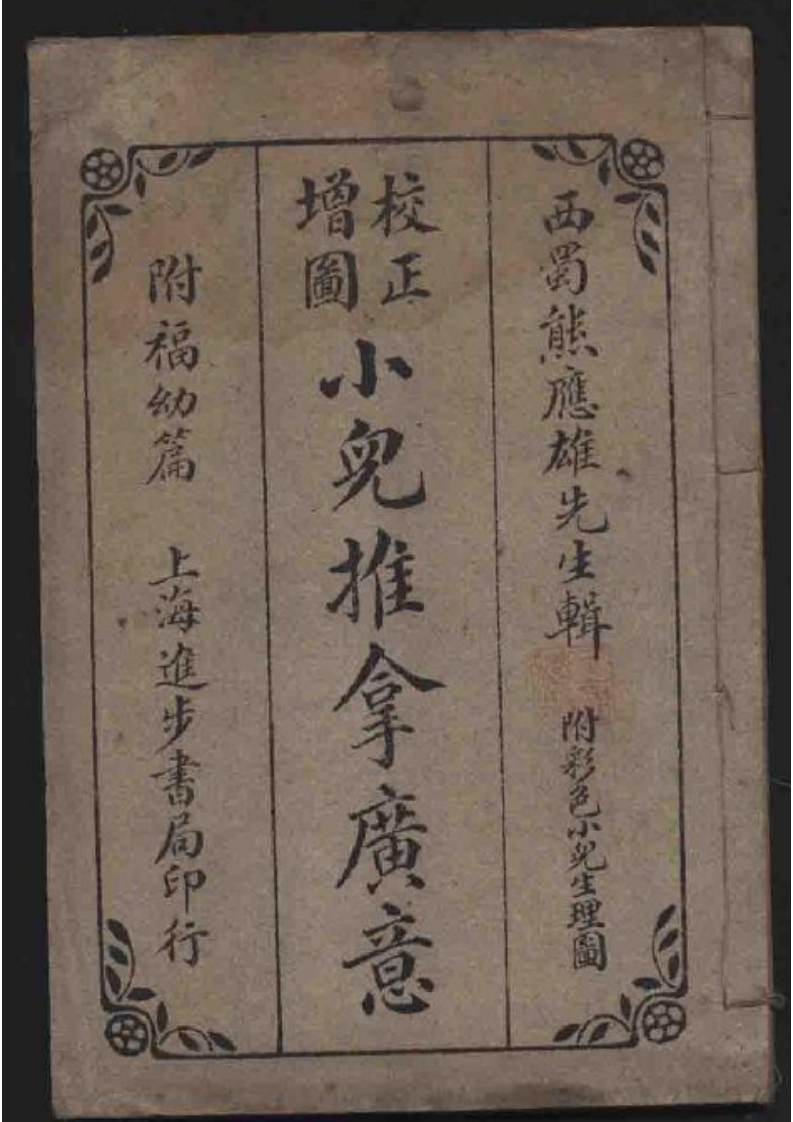 西蜀熊應雄先生輯
附彩色小兒生理圖
校正
增圖
小兒推拿廣意
附福幼篇
上海進步書局印行